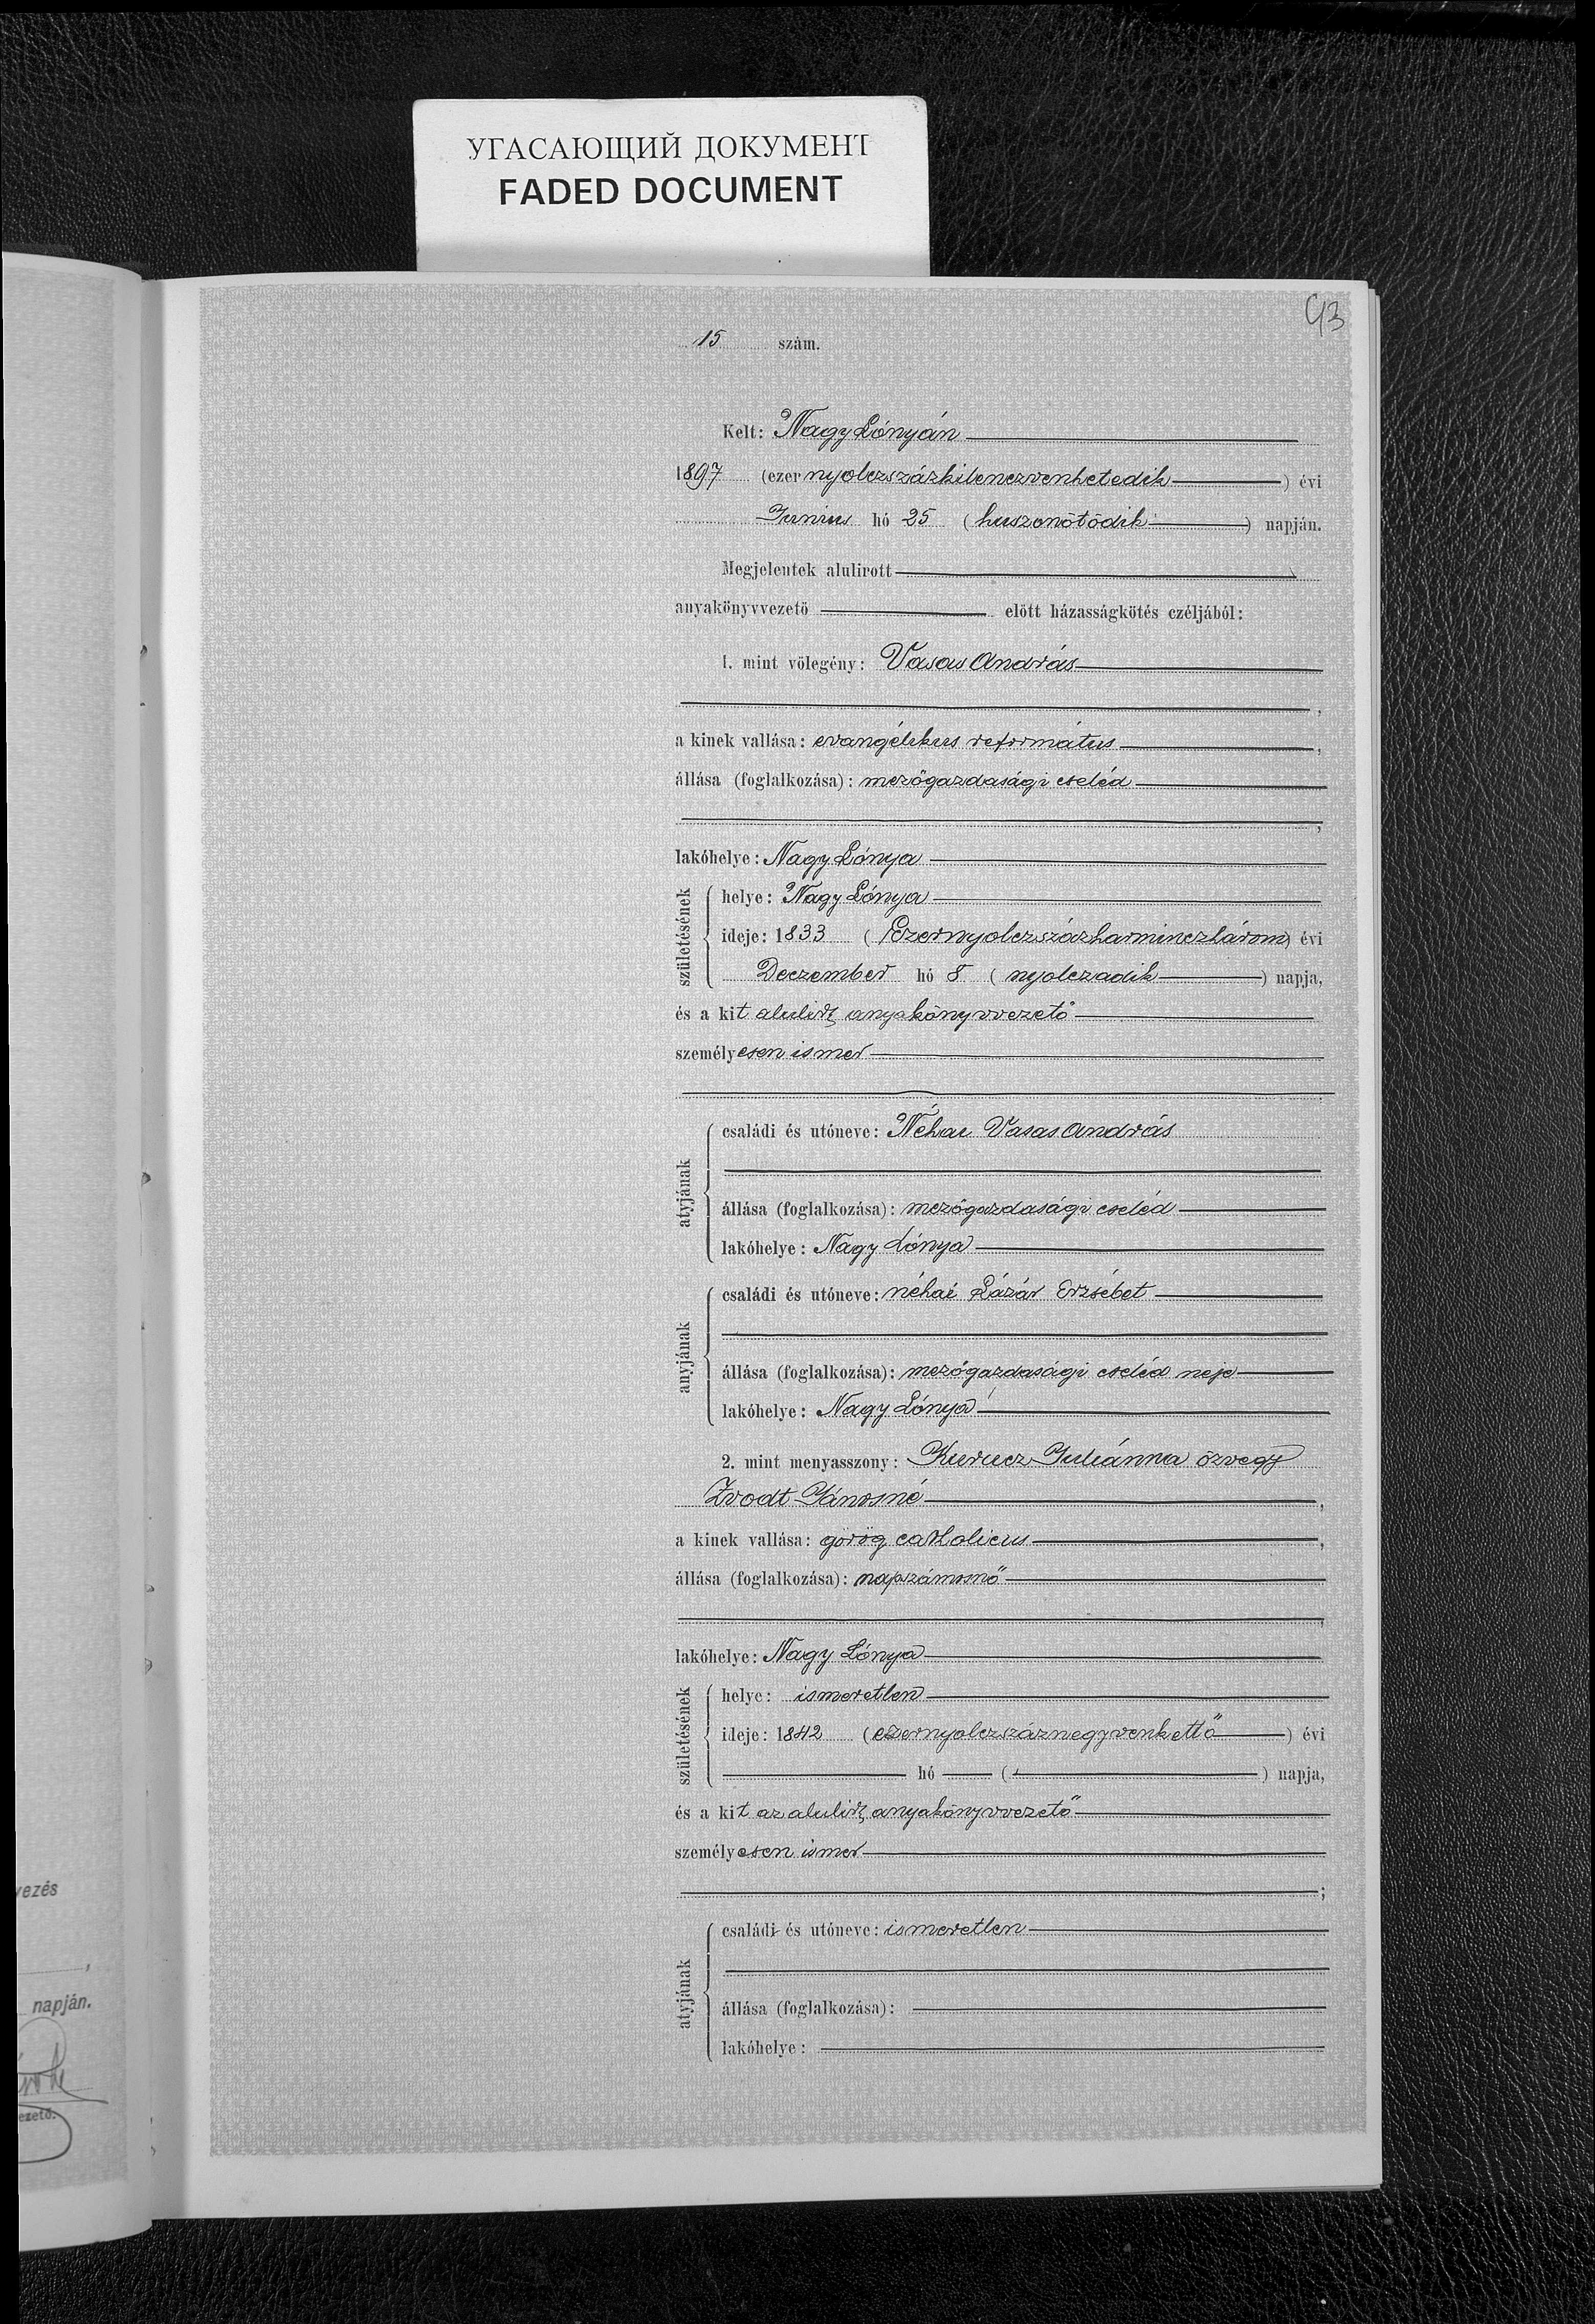 УГАСАЮЩИЙ ДОКУМЕНТ
FADED DOCUMENT
43
15 szám.
Kelt: Nagy Lónyán
1897 (ezer nyolczszázkilenczvenhetedik) évi
Junius hó 25 (huszonötödik) napján.
Megjelentek alulirott
anyakönyvvezető előtt házasságkötés czéljából:
1. mint vőlegény: Vasas András
,
a kinek vallása: evangélikus református ,
állása (foglalkozása): mezőgazdasági cseléd
,
lakóhelye: Nagy Lónya
születésének
helye: Nagy Lónya
ideje: 1833 (Ezernyolczszázharminczhárom) évi
Deczember hó 8 (nyolczadik) napja,
és a kit alulirt anyakönyvvezető
személyesen ismer
atyjának
családi és utóneve: Néhai Vasas András
állása (foglalkozása): mezőgazdasági cseléd
lakóhelye: Nagy Lónya
anyjának
családi és utóneve: néhai Lázár Erzsébet
állása (foglalkozása): mezőgazdasági cseléd neje
lakóhelye: Nagy Lónya
2. mint menyasszony: Kurucz Juliánna özvegy
Zvodt Jánosné ,
a kinek vallása: görög catholicus ,
állása (foglalkozása): napszámosnő
,
lakóhelye: Nagy Lónya
születésének
helye: ismeretlen
ideje: 1842 (ezernyolczszáznegyvenkettő) évi
hó ( ) napja,
és a kit az alulirt anyakönyvvezető
személyesen ismer
;
atyjának
családi és utóneve: ismeretlen
állása (foglalkozása):
lakóhelye:
vezés
,
napján.
ezető.